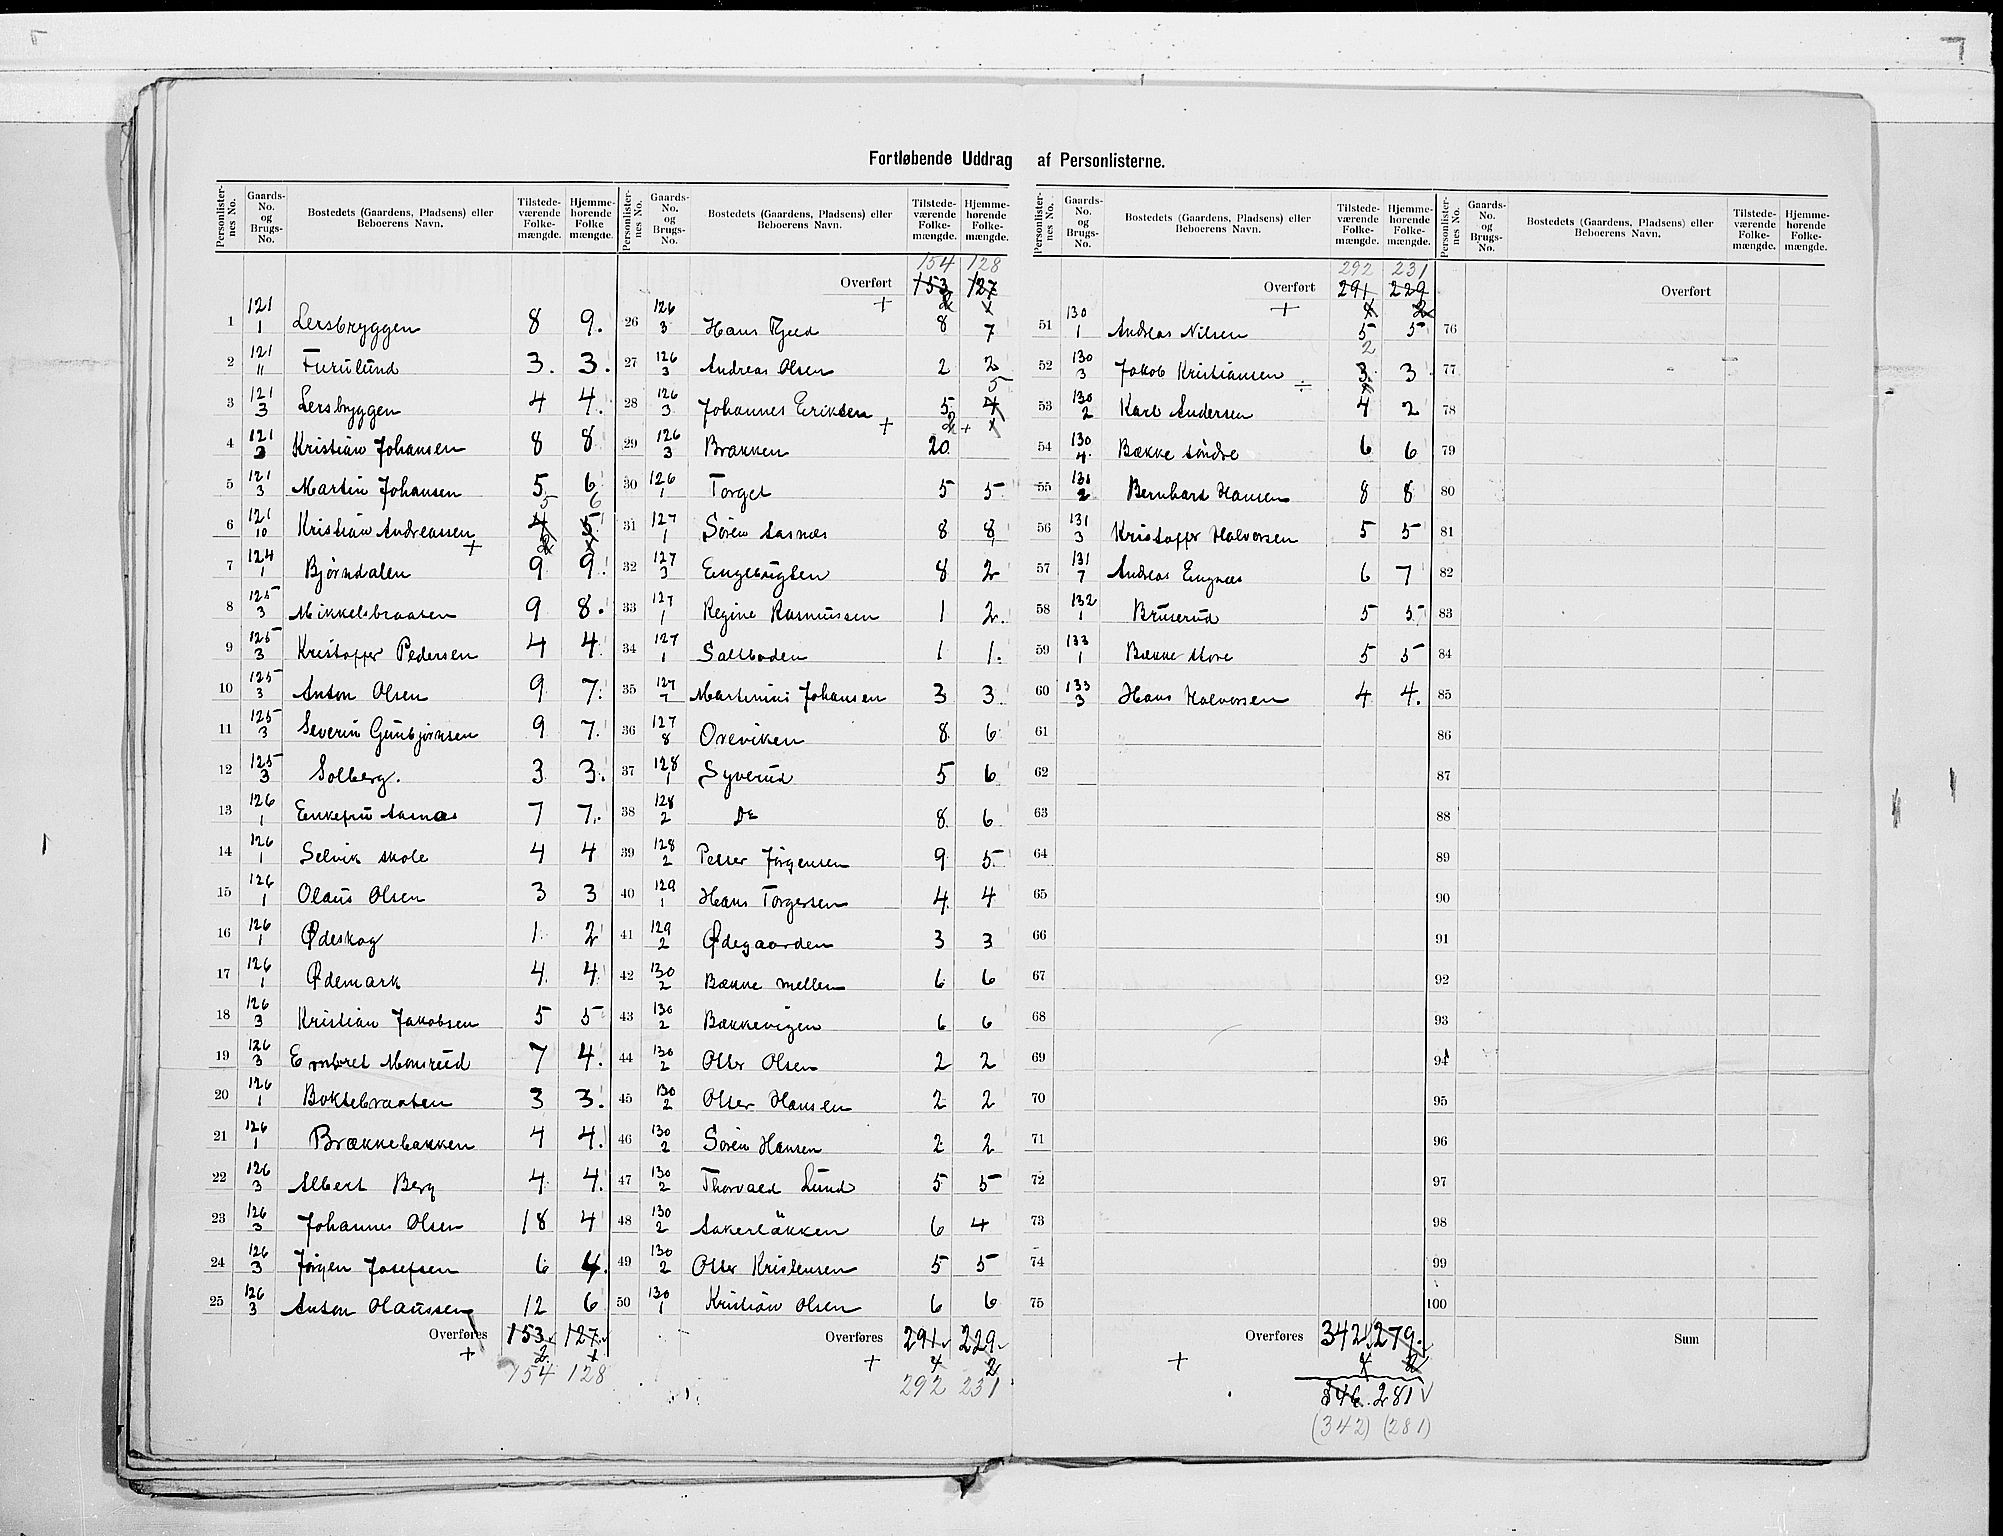 Fortløbende Uddrag af Personlisterne.
Personlisternes No. Gaards-No. og Brugs-No. Bostedets (Gaardens, Pladsens) eller Beboerens Navn. Tilstedeværende Folkemængde. Hjemmehørende Folkemængde.
1 121/1 Lersbryggen 8 9.
2 121/11 Furulund 3. 3.
3 121/3 Lersbryggen 4 4.
4 121/3 Kristian Johansen 8 8
5 121/3 Martin Johansen 5 6
6 121/10 Kristian Andreassen + 4 5 5 6
7 124/1 Bjørndalen 9 9.
8 125/3 Mikkelsbraaten 9 8.
9 125/3 Kristoffer Pedersen 4 4
10 125/3 Anton Olsen 9 7.
11 125/3 Severin Gunbjørnsen 9 7.
12 125/3 Solberg. 3 3.
13 126/1 Enkefru Aasnæs 7 7.
14 126/1 Selvik skole 4 4
15 126/1 Olaus Olsen 3 3
16 126/1 Ødeskog 1 2
17 126/1 Ødemark 4. 4.
18 126/3 Kristian Jakobsen 5 5
19 126/3 Embret Monsrud 7 4.
20 126/1 Boksebraaten 3 3.
21 126/1 Brækkebakken 4 4.
22 126/3 Albert Berg 4 4.
23 126/3 Johannes Olsen 18 4
24 126/3 Jørgen Josefsen 6 4.
25 126/3 Anton Olaussen 12 6
Overføres 153 127
+ 2 1
154 128
Personlisternes No. Gaards-No. og Brugs-No. Bostedets (Gaardens, Pladsens) eller Beboerens Navn. Tilstedeværende Folkemængde. Hjemmehørende Folkemængde.
154 128
Overført 153 127
+ 2 1
26 126/3 Hans Kjeld 8 7
27 126/3 Andreas Olsen 2 2
28 126/3 Johannes Eriksen 5 4 5
+ 2 + 1
29 126/3 Brækken 20
30 126/1 Torget 5 5
31 127/1 Sören Aasnæs 8 8
32 127/3 Engebugten 8 2
33 127/1 Regine Rasmussen 1 2.
34 127/1 Saltboden 1 1.
35 127/7 Martinius Johansen 3 3
36 127/8 Oreviken 8 6
37 128/1 Syverud 5 6
38 128/2 Do 8 6
39 128/2 Petter Jörgensen 9 5
40 129/1 Hans Torgersen 4 4
41 129/2 Ødegaarden 3 3
42 130/2 Bække mellem 6 6
43 130/2 Bækkevigen 6 6
44 130/2 Otter Olsen 2 2
45 130/2 Otter Hansen 2 2
46 130/2 Sören Hansen 2 2
47 130/2 Thorvald Lund 5 5
48 130/2 Aakerløkken 6 4
49 130/2 Otter Kristensen 5 5
50 130/1 Kristian Olsen 6 6
Overføres 291 229
+ 4 2
292 231
Personlisternes No. Gaards-No. og Brugs-No. Bostedets (Gaardens, Pladsens) eller Beboerens Navn. Tilstedeværende Folkemængde. Hjemmehørende Folkemængde.
292 231
Overført 291 229
+ 4 2
51 130/1 Andreas Nilsen 5 5
52 130/3 Jakob Kristiansen ÷ 3 2 3
53 130/2 Karl Andersen 4 2
54 130/4 Bække söndre 6 6
55 131/2 Bernhard Hansen 8 8
56 131/3 Kristoffer Halvorsen 5 5
57 131/7 Andreas Engnæs 6 7
58 132/1 Bruserud 5 5
59 133/1 Bække store 5 5
60 133/3 Hans Halvorsen 4 4.
61
62
63
64
65
66
67
68
69
70
71
72
73
74
75
Overføres 342 279.
+ 4 2
346. 281
(342) (281)
Personlisternes No. Gaards-No. og Brugs-No. Bostedets (Gaardens, Pladsens) eller Beboerens Navn. Tilstedeværende Folkemængde. Hjemmehørende Folkemængde.
Overført
76
77
78
79
80
81
82
83
84
85
86
87
88
89
90
91
92
93
94
95
96
97
98
99
100
Sum